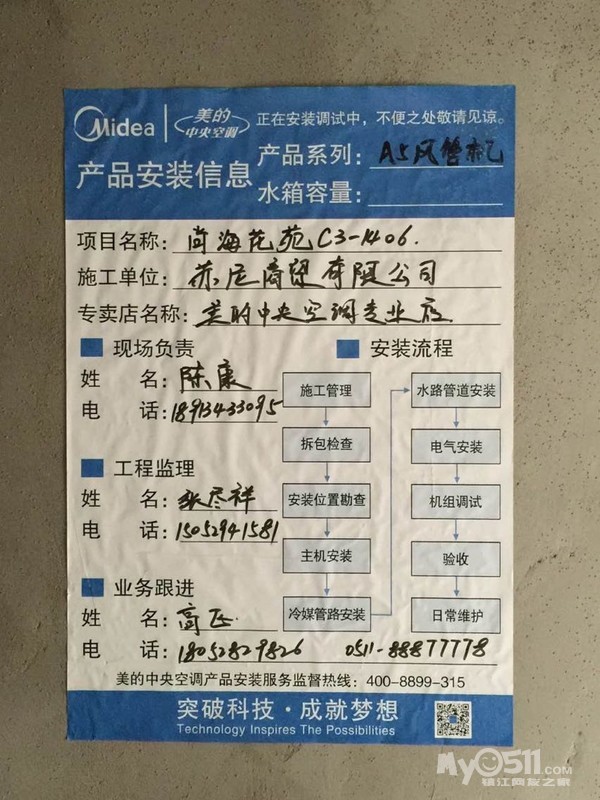 Midea 美的 中央空调 正在安装调试中，不便之处敬请见谅。
产品安装信息
产品系列：A5风管机
水箱容量：
项目名称：尚海花苑C3-1406.
施工单位：苏尼商贸有限公司
专卖店名称：美的中央空调专业店
现场负责
姓 名：陈康
电 话：18913433095
工程监理
姓 名：张尽祥
电 话：15052941581
业务跟进
姓 名：高正
电 话：18052829826 0511-88877778
安装流程
施工管理
拆包检查
安装位置勘查
主机安装
冷媒管路安装
水路管道安装
电气安装
机组调试
验收
日常维护
美的中央空调产品安装服务监督热线：400-8899-315
突破科技·成就梦想
Technology Inspires The Possibilities
My0511.com
镇江网友之家